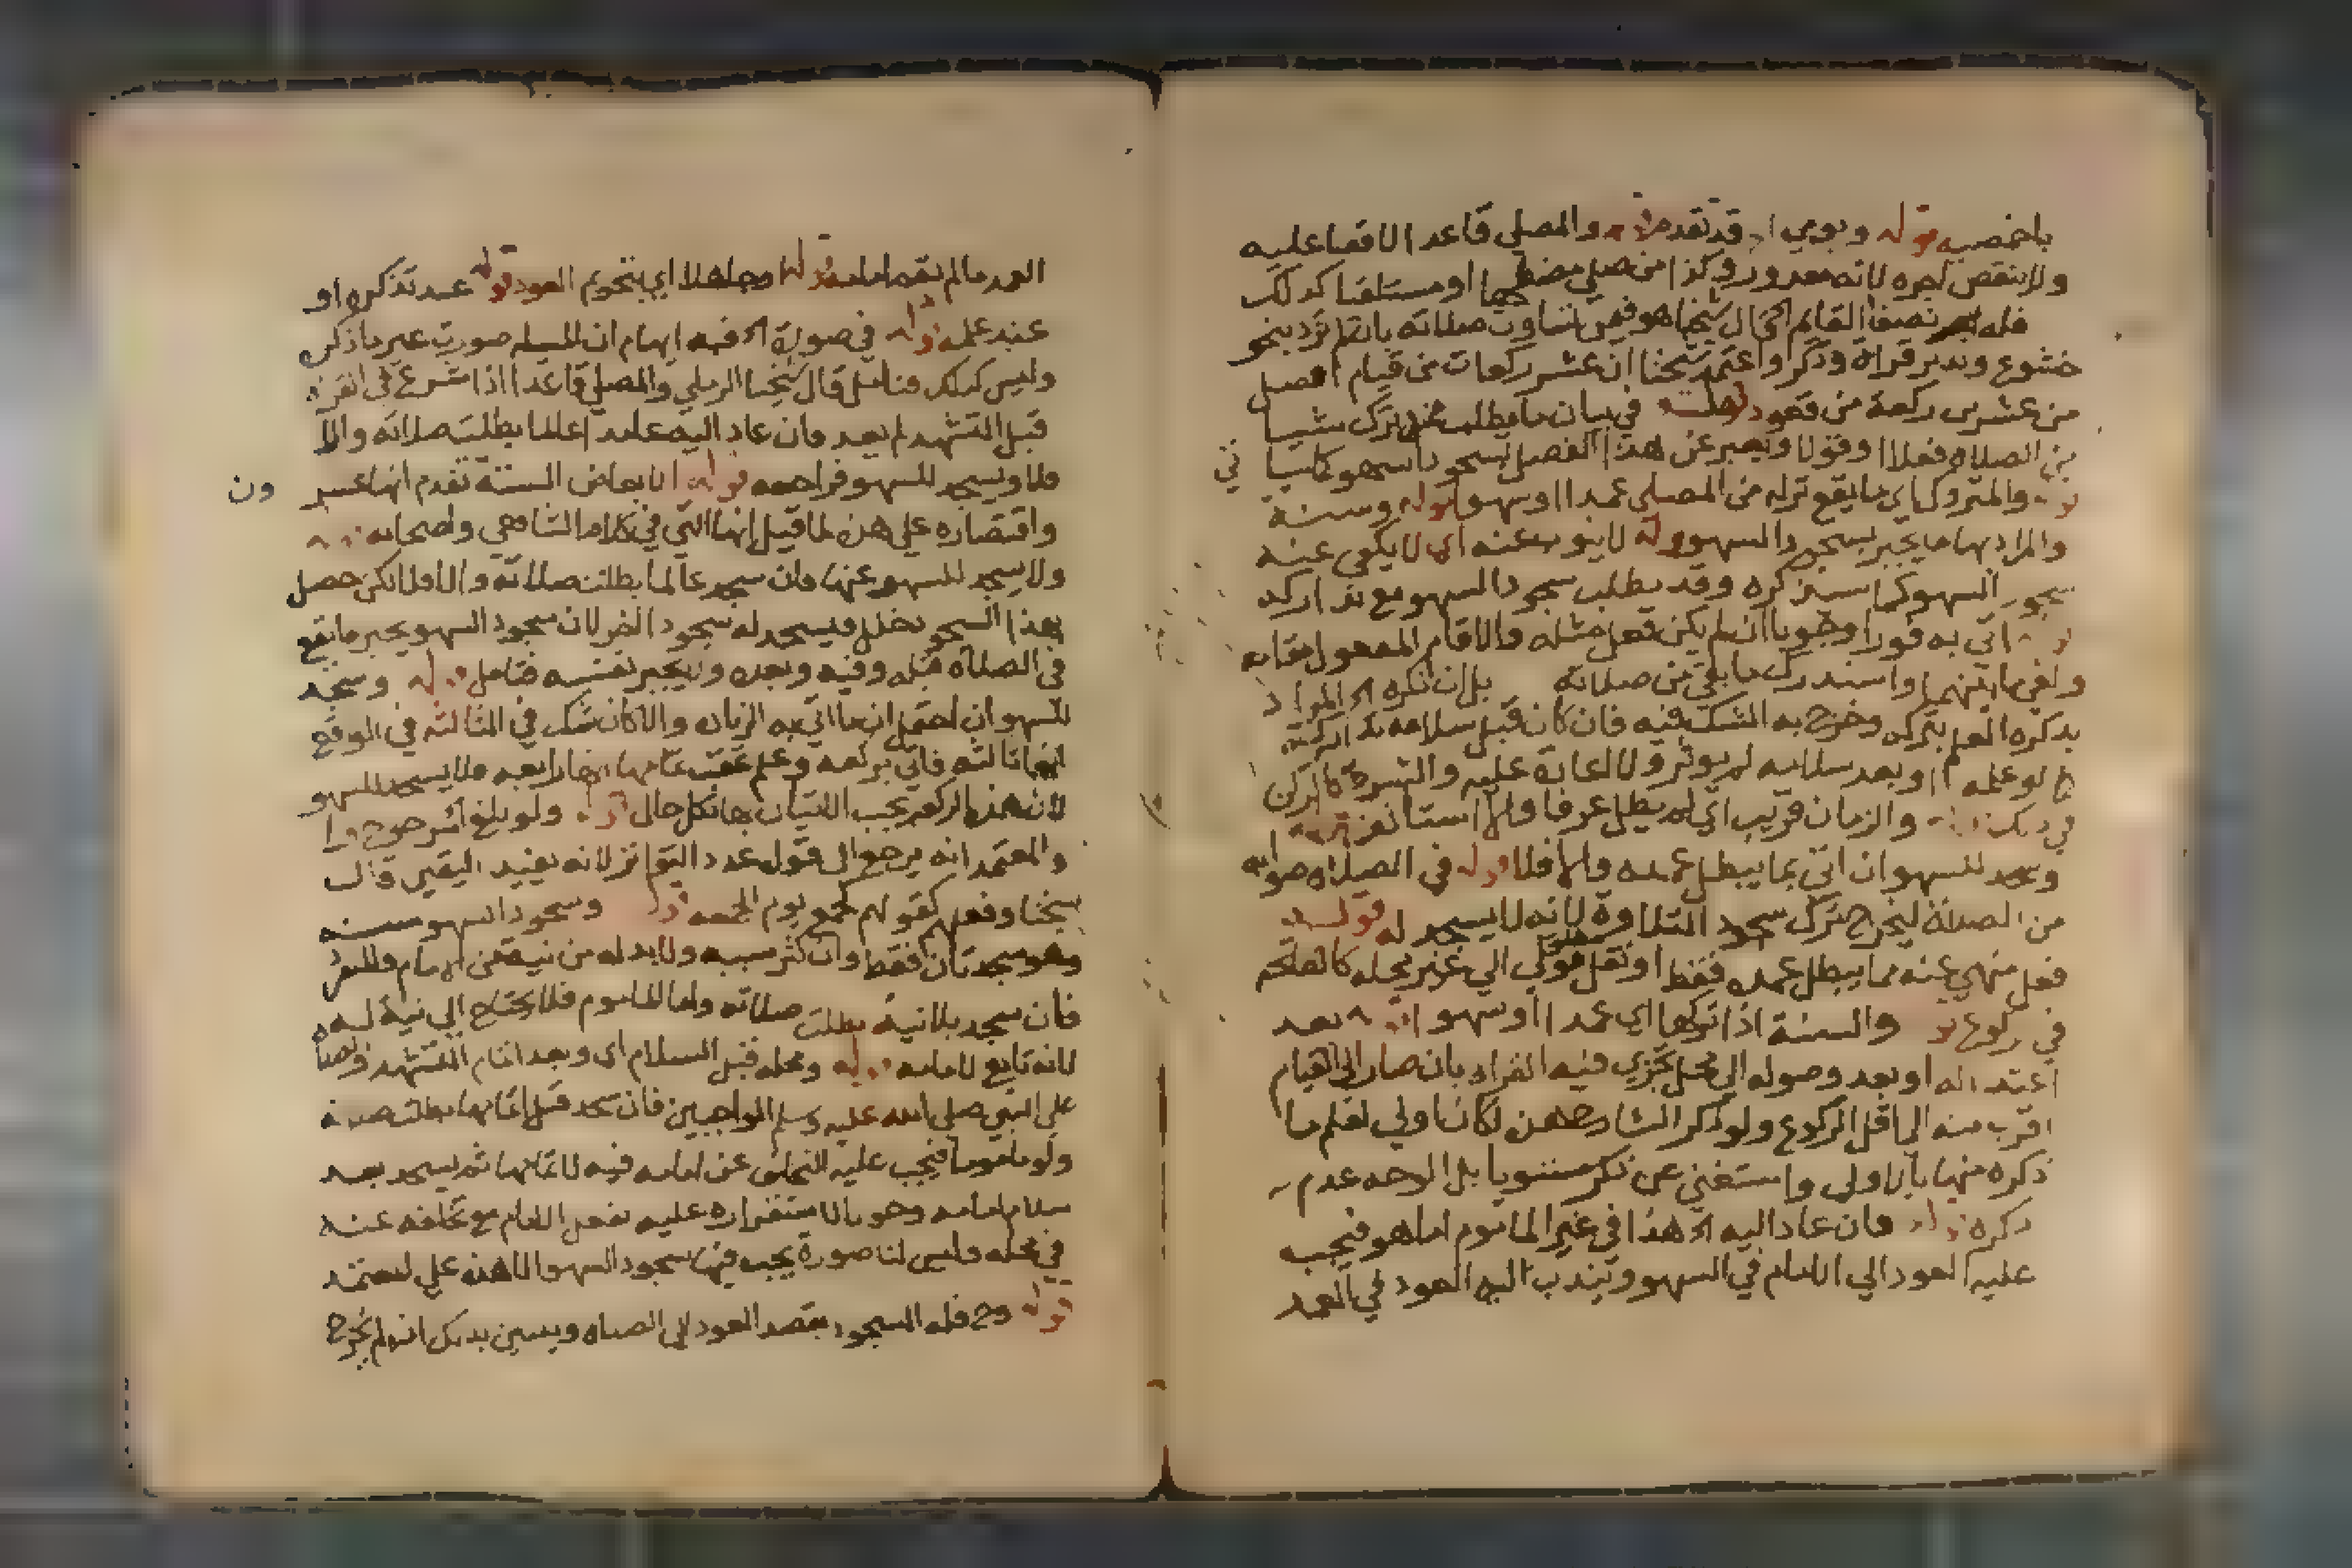 باخمصيه قوله ويومي قد تقدم والمصلي قاعدا لا قضا عليه
ولا ينقص اجره لانه معذور وكذا من صلى مضطجعا او مستلقيا كذلك
فله اجر نصف القايم الخ قال شيخنا هو فيمن تساوت صلاته بان لم تزد بنحو
خشوع وتدبر قراة وذكر واعتمد شيخنا ان عشر ركعات من قيام افضل
من عشرين ركعة من قعود في بيان ما يطلب عند ترك شيا
من الصلاه فعلا او قولا ويعبر عن هذا الفصل بسجود السهو
والمتروك اي ما يقع تركه من المصلي عمدا او سهوا قوله وسنة
والمراد بها ما يجبر بسجود السهو قوله لا ينوب عنه اي لا يكفي عنه
سجود السهو كما سيذكره وقد يطلب سجود السهو مع تداركه
اتى به فورا وجوبا ان لم يكن فعل مثله والا قام المفعول مقامه
ولغى ما بينهما واستدرك ما بقي من صلاته بل ان ذكره الخ المراد
بذكره العلم بتركه وخرج به الشك فيه فان كان قبل سلامه تداركه
لو علمه او بعد سلامه لم يوثر ولا اعادة عليه والشرط كالركن
في ذلك والزمان قريب اي لم يطل عرفا والا استانف
وسجد للسهو ان اتى بما يبطل عمده والا فلا قوله في الصلاه صوابه
من الصلاة ليخرج ترك سجود التلاوة لانه لا يسجد له قوله
فعل منهي عنه مما يبطل عمده فقط او نقل قولي الى غير محله كالفاتحة
في ركوع والسنة اذا تركها اي عمدا او سهوا بعد
اعتداله او بعد وصوله الى محل تجزي فيه القراة بان صار الى القيام
اقرب منه الى اقل الركوع ولو ذكر الشارح هذه لكان اولى لعلم ما
ذكره منها بالاولى واستغنى عن ذكر مستويا بل الوجه عدم
ذكره فان عاد اليه الخ هذا في غير الماموم اما هو فيجب
عليه العود الى الامام في السهو ويندب اليه العود في العمد
العمد ما لم يقم امامه قوله وجاهلا اي بتحريم العود قوله عند تذكره او
عند علمه قوله في صورة الخ فيه ايهام ان المسيلة صورت غير ما ذكره
وليس كذلك فتامل قال شيخنا الرملي والمصلي قاعدا اذا شرع في القراة
قبل التشهد لم يعد فان عاد اليه عامدا عالما بطلت صلاته والا
فلا ويسجد للسهو فراجعه قوله الابعاض الستة تقدم انها عشر ون
واقتصاره على هذه لما قيل انها التي في كلام الشافعي واصحابه
ولا يسجد للسهو عنها فان سجد عالما بطلت صلاته والا فلا لكن حصل
بهذا السجود خلل فيسجد له سجودا اخر لان سجود السهو يجبر ما يقع
في الصلاة قبله وفيه وبعده ولا يجبر نفسه فتامل قوله وسجد
للسهو ان احتمل ان ما اتى به الزيادة والا كان شك في الثالثه في الواقع
انها ثالثه فاتى بركعه وعلم عقب تمامها انها رابعه فلا يسجد للسهو
لان هذه الركعة يجب الاتيان بها بكل حال قوله ولو بلغ مرجوح
والمعتمد انه يرجع الى قول عدد التواتر لانه يفيد اليقين قال
شيخنا وفعلهم كقولهم كجمع يوم الجمعه قوله وسجود السهو سنة
وهو سجدتان فقط وان كثر سببه ولا بد له من نية من الامام والمنفرد
فان سجد بلا نية بطلت صلاته واما الماموم فلا يحتاج الى نية له
لانه تابع لامامه قوله ومحله قبل السلام اي وبعد اتمام التشهد والصلاة
على النبي صلى الله عليه وسلم الواجبين فان سجد قبل اتمامها بطلت صلاته
ولو ماموما فيجب عليه التخلف عن امامه فيه لاتمامها ثم يسجد بعد
سلام امامه وجوبا لاستقراره عليه بفعل الامام مع تخلفه عنه
في محله وليس لنا صورة يجب فيها سجود السهو الا هذه على المعتمد
قوله وح فله السجود بقصد العود الى الصلاة ويتبين بذلك انه لم يخرج